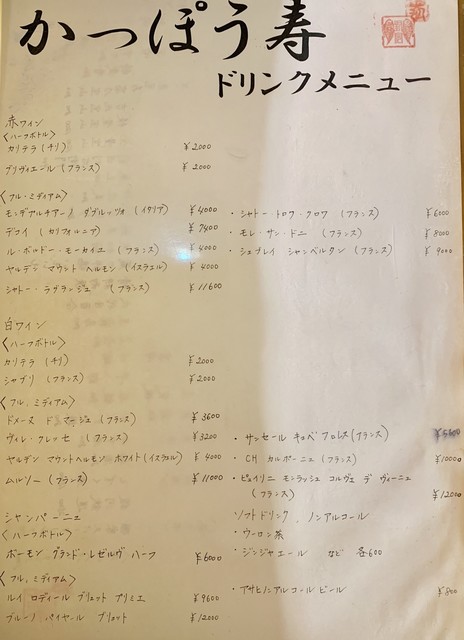 かっぽう寿
ドリンクメニュー
赤ワイン
〈ハーフボトル〉
カリテラ (チリ) ¥2000
ブリヴィエール (フランス) ¥2000
〈フル、ミディアム〉
モンテプルチアーノ ダブルッツォ (イタリア) ¥4000
(カリフォルニア) ¥7400
ル・ボルドー・モーカイユ (フランス) ¥4000
ヤルデン マウント ヘルモン (イスラエル) ¥4000
シャトー・ラグランジュ (フランス) ¥11600
・シャトー・トロワ・クロワ (フランス) ¥6000
・モレ・サン・ドニ (フランス) ¥8000
・ジュブレイ シャンベルタン (フランス) ¥9000
白ワイン
〈ハーフボトル〉
カリテラ (チリ) ¥2000
シャブリ (フランス) ¥2000
〈フル、ミディアム〉
ドメーヌ ド マージュ (フランス) ¥3600
ヴィレ・クレッセ (フランス) ¥3200
ヤルデン マウントヘルモン ホワイト (イスラエル) ¥4000
ムルソー (フランス) ¥11000
・サンセール キュベ フロレス (フランス) ¥5500
・CH カルボーニュ (フランス) ¥10000
・ピュイリニ モンラッシェ コルヴェ デ ヴィーニュ
(フランス) ¥12000
シャンパーニュ
〈ハーフボトル〉
ボーモン グランド・レゼルヴ ハーフ ¥6000
〈フル、ミディアム〉
ルイ ロディール ブリュット プリミエ ¥9600
ブルーノ パイヤール ブリュット ¥12000
ソフトドリンク、ノンアルコール
・ウーロン茶
・ジンジャエール など 各600
・アサヒノンアルコールビール ¥800